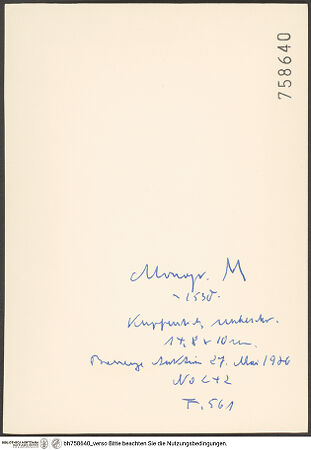 758640
Monogr. M
~1530.
Kupferstich
14,8 x 10 cm.
Auktion 27. Mai 1986
No 242
F. 561
bh758640_verso Bitte beachten Sie die Nutzungsbedingungen.